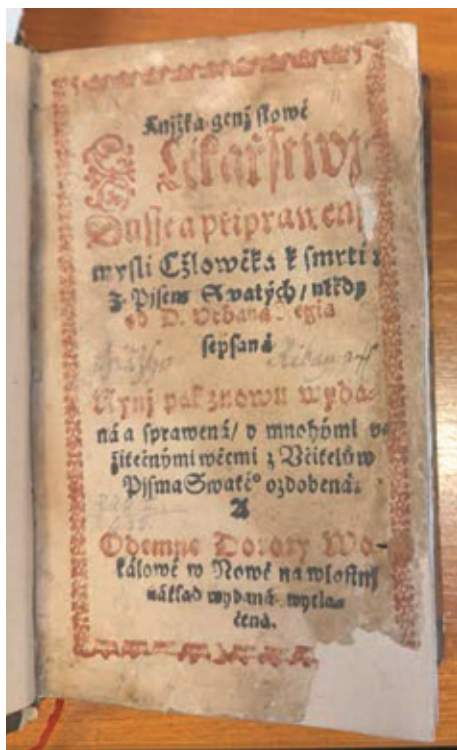 Knjžka genž slowé
Lékařstwj
Dusse a připrawenj
mysli Cžlowěka k smrti:
Z Pisem Swatých / někdy
od D. Urbana Regia
sepsaná
Nynj pak znowu wyda-
ná a sprawená / y mnohými v-
žitečnými wěcmi z Včitelůw
Pjsma Swatéº ozdobená:
A
Odemne Doroty Wo-
kálowé w Nowé na wlastnj
náklad wydaná wytla-
čena.